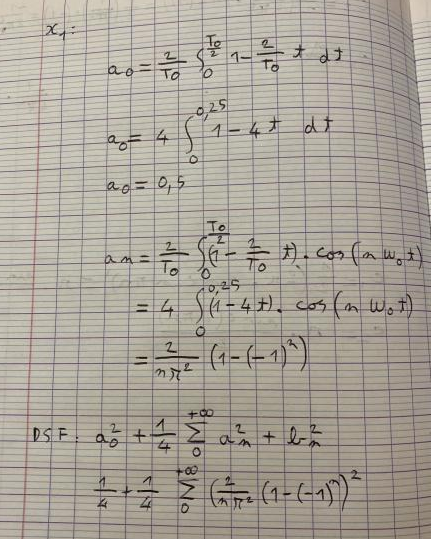 x₁:
a₀ = 2/T₀ ∫₀^(T₀/2) 1 - 2/T₀ t dt
a₀ = 4 ∫₀^(0,25) 1 - 4t dt
a₀ = 0,5
aₙ = 2/T₀ ∫₀^(T₀/2) (1 - 2/T₀ t). cos(n ω₀ t)
= 4 ∫₀^(0,25) (1 - 4t). cos(n ω₀ t)
= 2/(nπ²) (1 - (-1)ⁿ)
DSF: a₀² + 1/4 Σ₀^(+∞) aₙ² + bₙ²
1/4 + 1/4 Σ₀^(+∞) (2/(nπ²) (1 - (-1)ⁿ))²